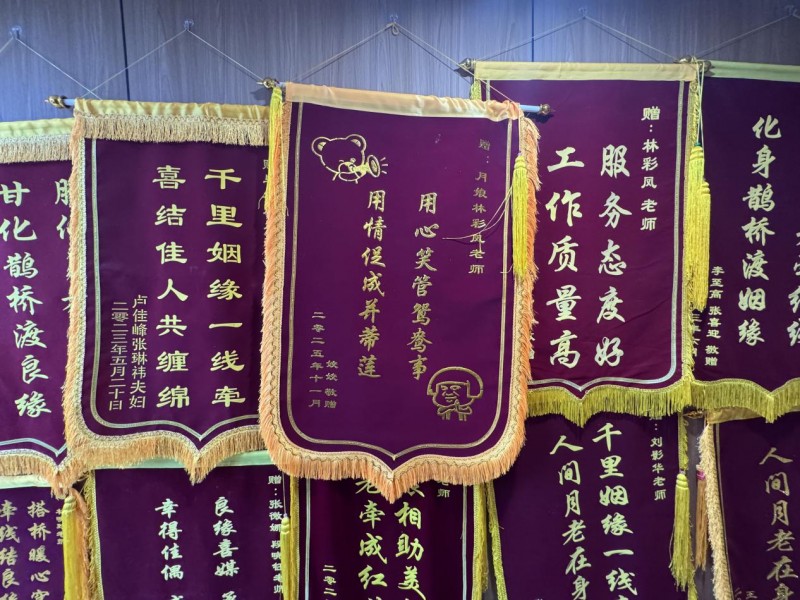 甘化鹊桥渡良缘
千里姻缘一线牵
喜结佳人共缠绵
卢佳峰张琳祎夫妇
二零二三年五月二十日
赠：月娘林彩凤老师
用心笑管鸳鸯事
用情促成并蒂莲
姣姣敬赠
二零二五年十一月
赠：林彩凤老师
服务态度好
工作质量高
化身鹊桥渡姻缘
李至高 张喜迎 敬赠
搭桥暖心窝
牵线结良缘
赠：张微娜
良缘喜媒
幸得佳偶
相助美
老牵成红
二零二
：刘影华老师
千里姻缘一线
人间月老在身
人间月老在